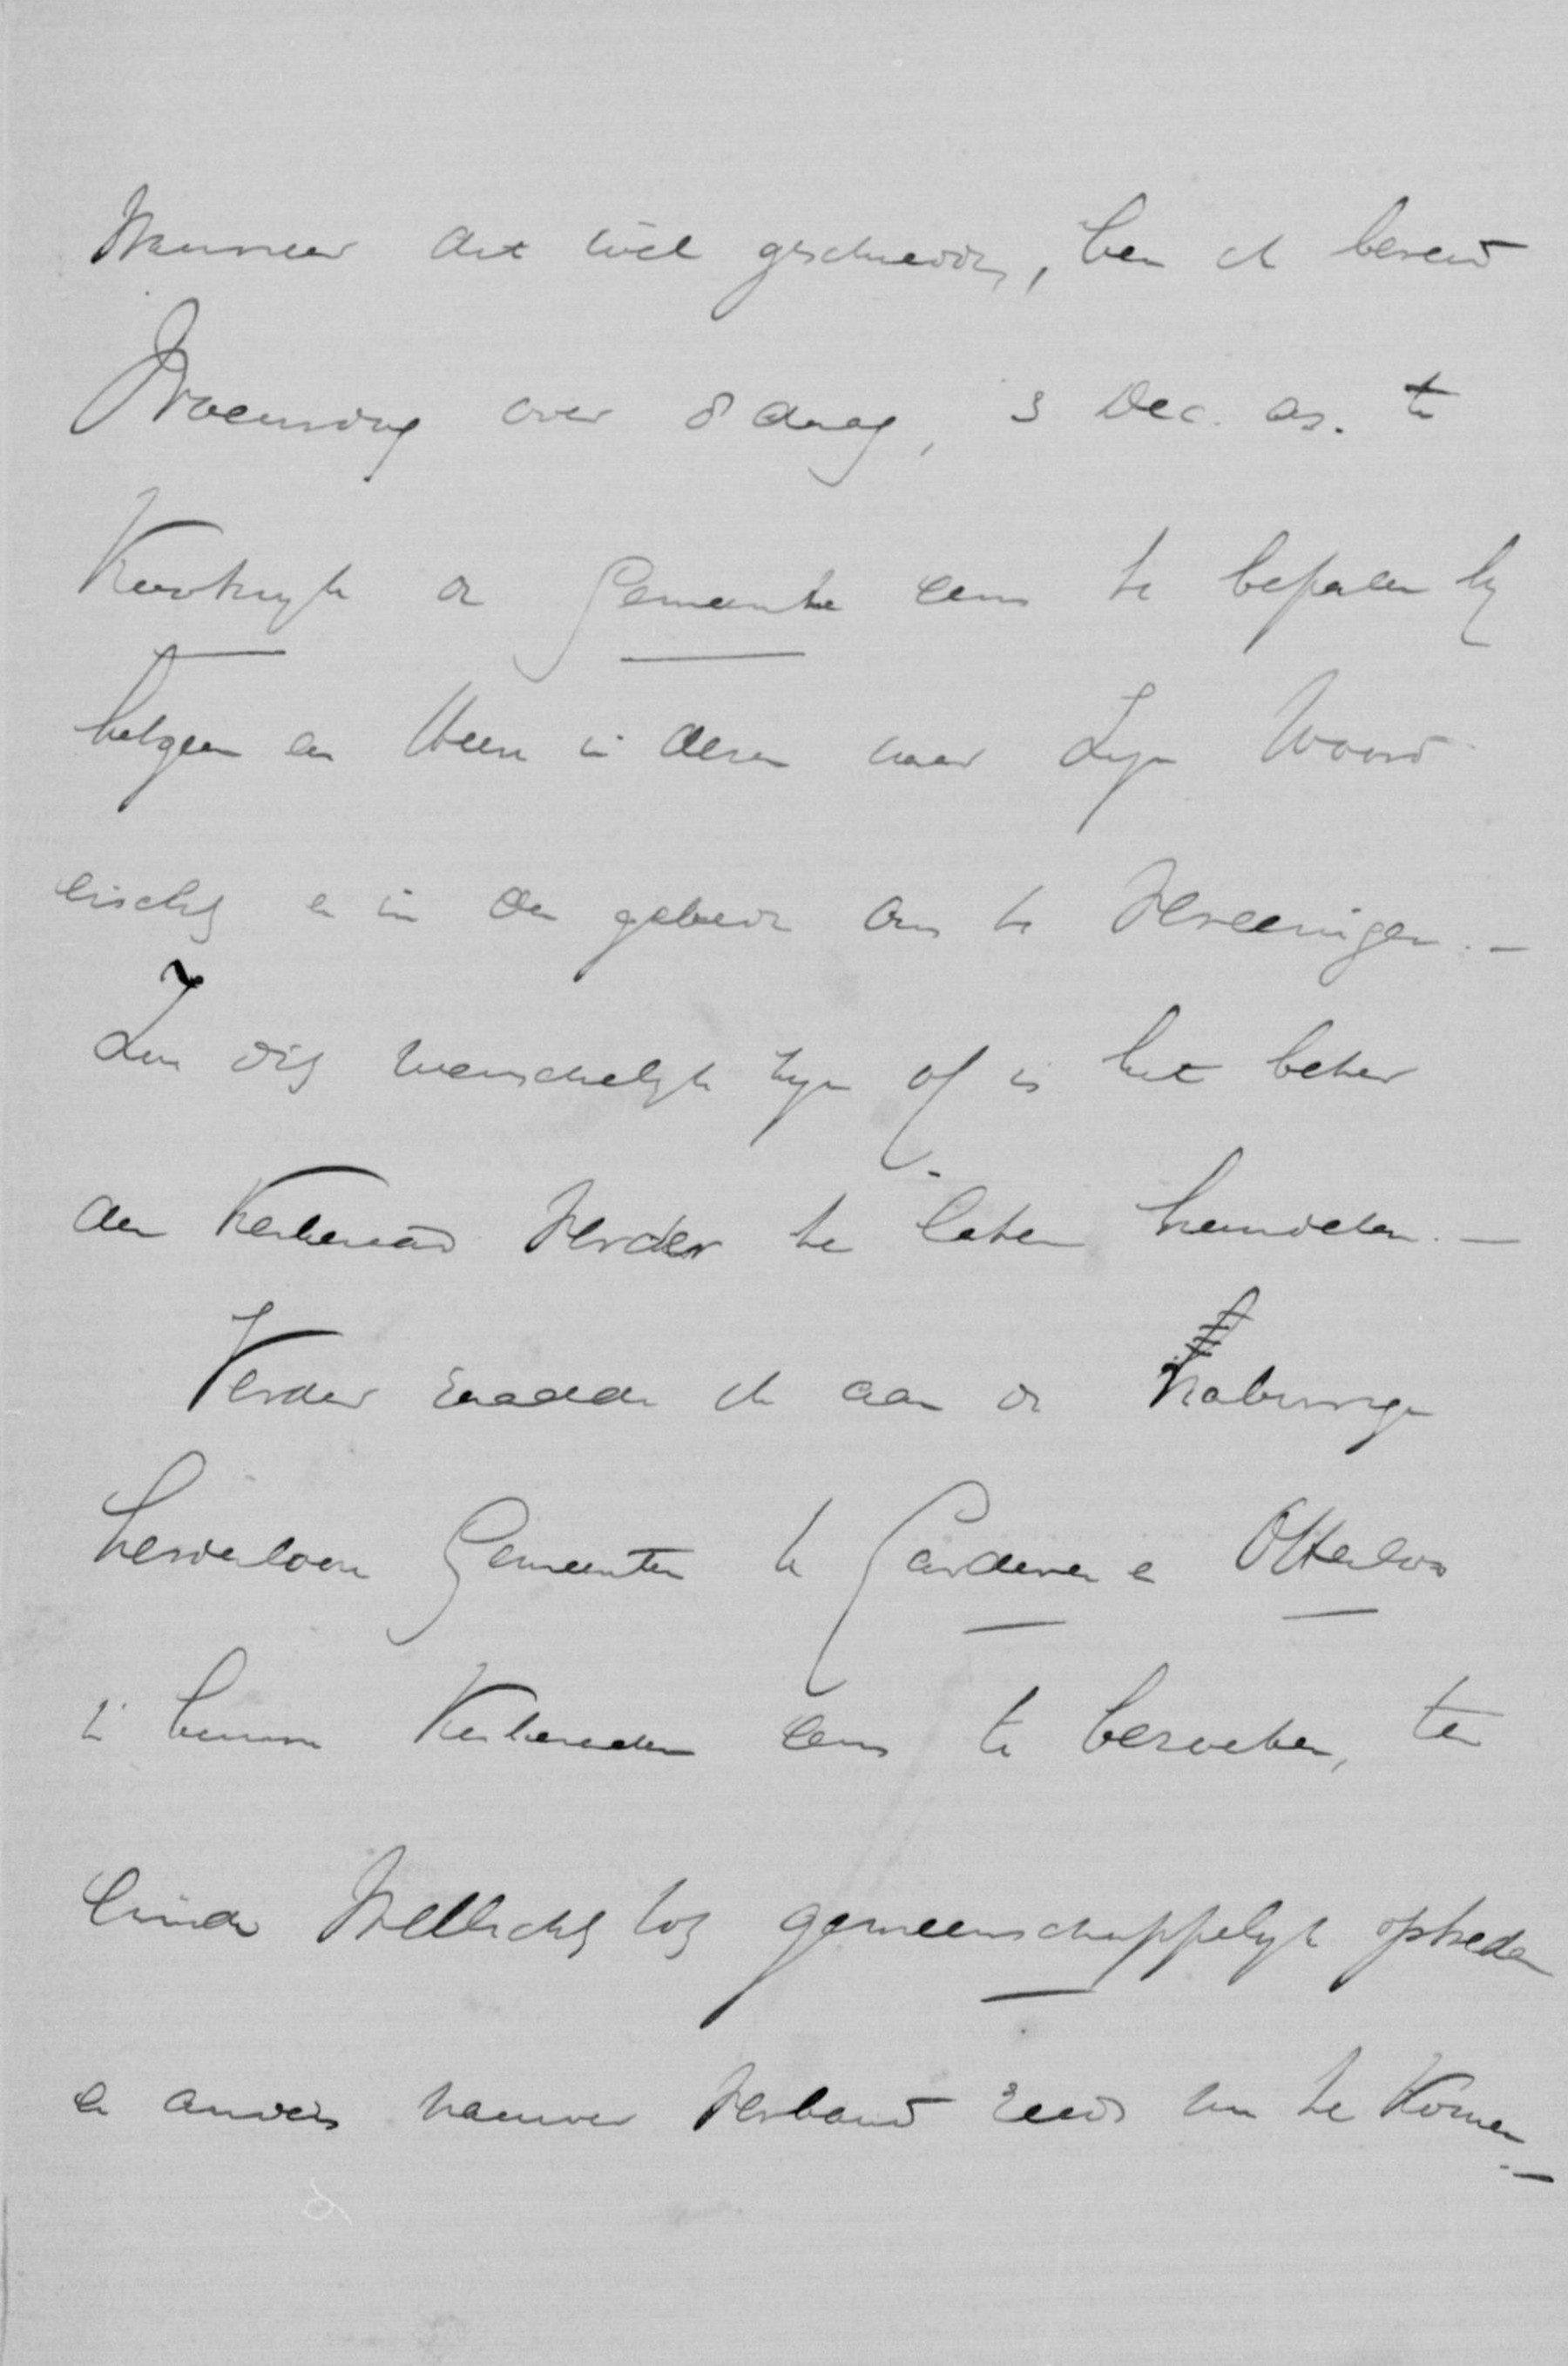 Wanneer dit wèl geschiedde, ben ik bereid
Woensdag over 8 daag, 3 Dec. as. te
Kootwijk de Gemeente eens te bepalen bij
hetgeen de Heere in dezen naar Zijn Woord
eischt en in den gebede ons te vereenigen. -
Zou dit wenschelijk zijn of is het beter
den Kerkeraad verder te laten handelen. -
Verder raadde ik aan de naburige
herderlooze Gemeenten te Garderen en Otterloo
in hunne Kerkeraden eens te bezoeken, ten
einde wellicht tot gemeenschappelijk optreden
en nauwer verband reeds nu te komen -